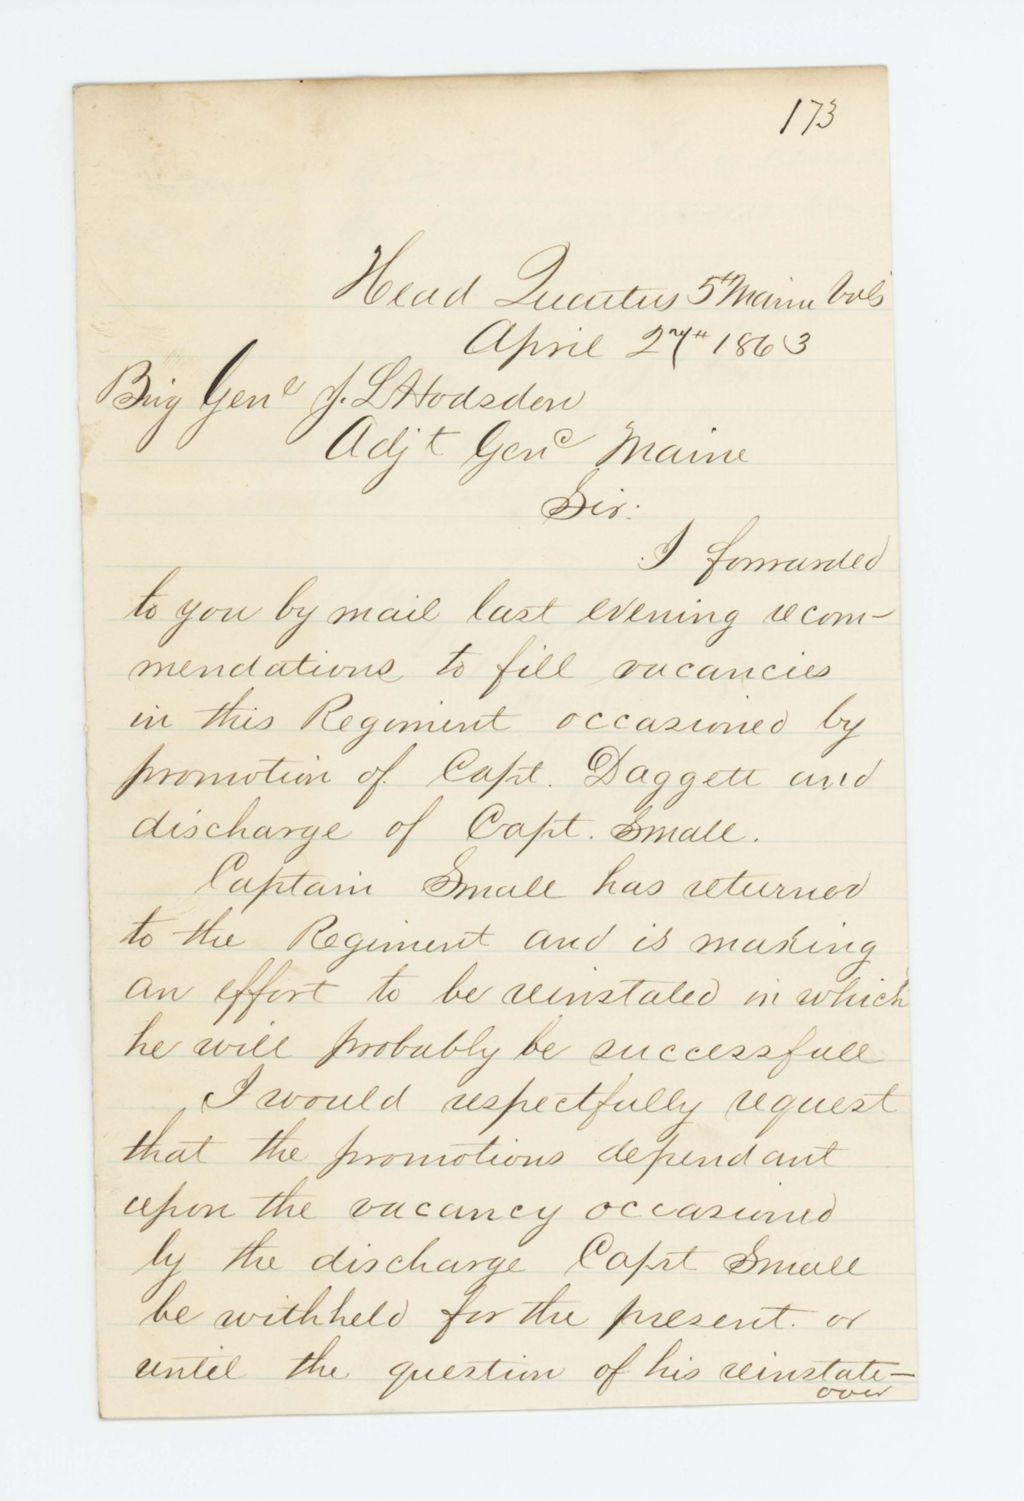 173
Head Quarters 5th Maine Vols
April 27th 1863
Brig Genl J. L Hodsdon
Adjt Genl Maine
Sir:
I forwarded
to you by mail last evening recom-
mendations to fill vacancies
in this Regiment occasioned by
promotion of Capt. Daggett and
discharge of Capt. Small.
Captain Small has returned
to the Regiment and is making
an effort to be reinstated in which
he will probably be successfull
I would respectfully request
that the promotions dependant
upon the vacancy occasioned
by the discharge Capt Small
be withheld for the present. or
until the question of his reinstate-
over